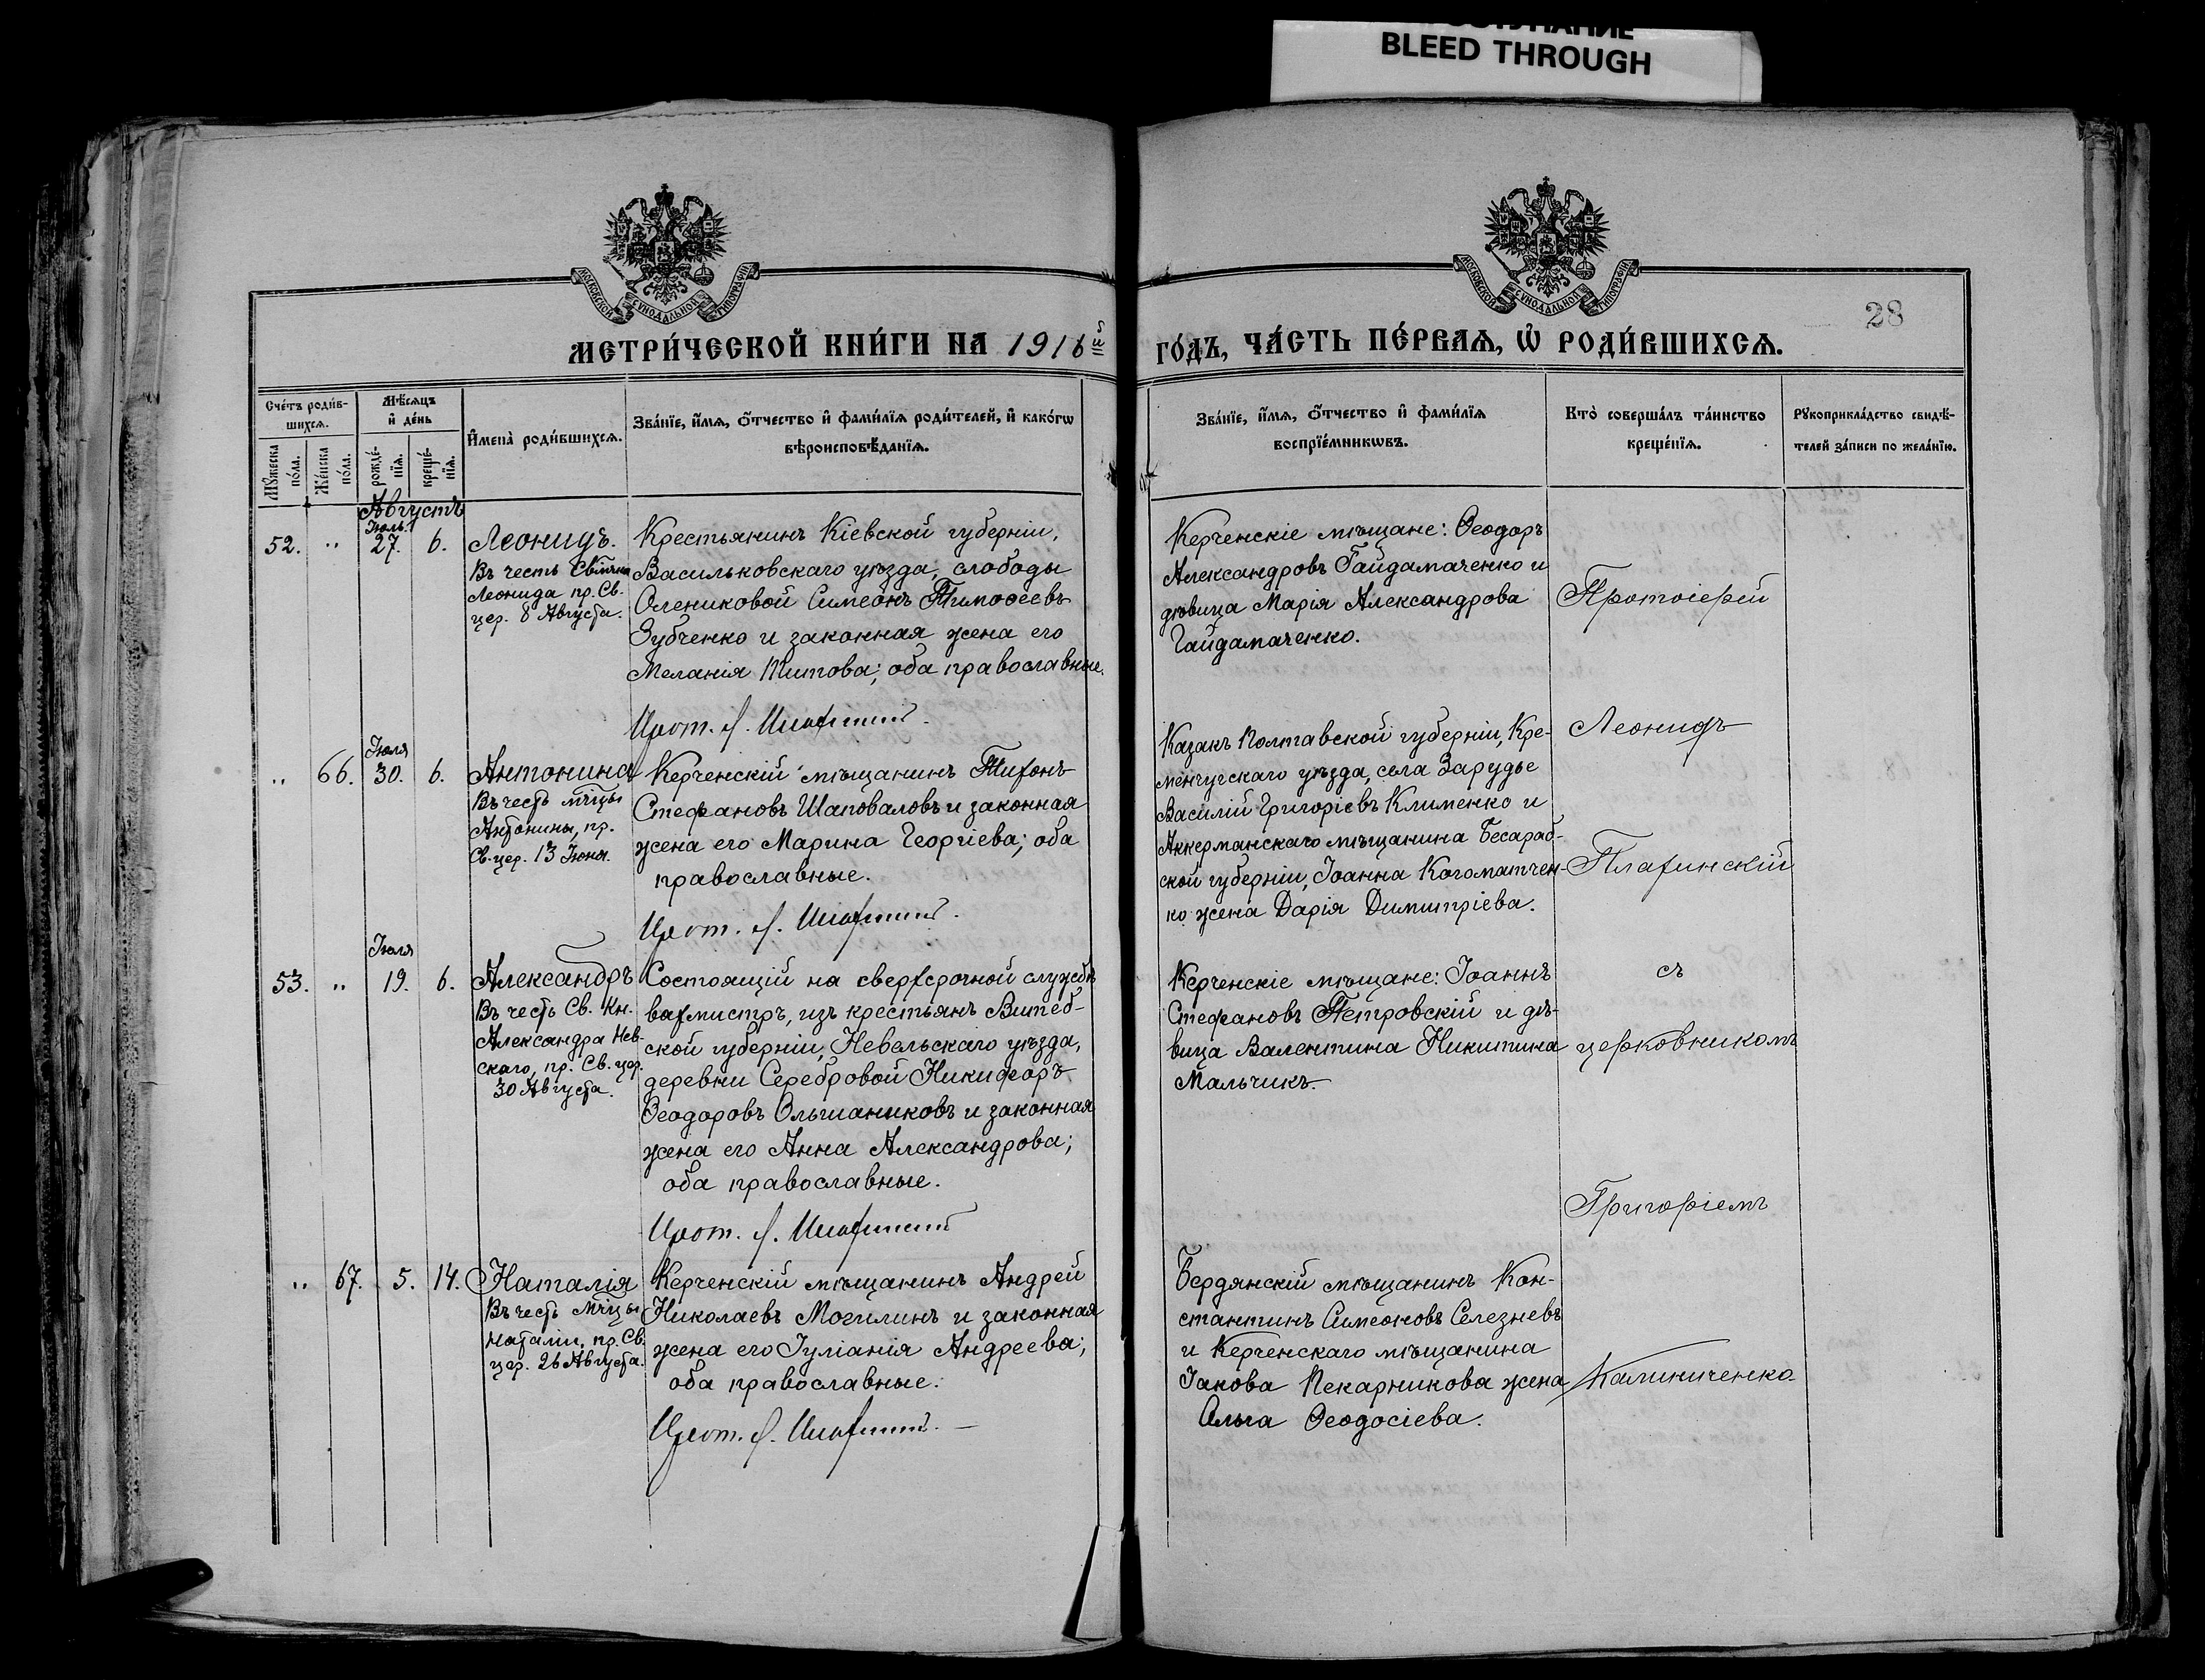 BLEED THROUGH
МОСКОВСКОЙ СѴНОДАЛЬНОЙ ТИПОГРАФІИ
МОСКОВСКОЙ СѴНОДАЛЬНОЙ ТИПОГРАФІИ
28
МЕТРИ́ЧЕСКОЙ КНИ́ГИ НА 1916й
ГО́ДЪ, ЧА́СТЬ ПЕ́РВАЯ, Ѡ РОДИ́ВШИХСЯ.
Сче́тъ роди́в-
шихся.
Мꙋжеска по́ла.
Же́нска по́ла.
Мѣ́сяцъ и де́нь
рожде́-нїя.
креще́-нїя.
И҆мена̀ роди́вшихся.
Зва́нїе, и҆́мя, ѻ҆́тчество и҆ фами́лїя роди́телей, и҆ како́гѡ
вѣроисповѣ́данїя.
Зва́нїе, и҆́мя, ѻ҆́тчество и҆ фами́лїя
воспрїе́мникѡвъ.
Кто̀ соверша́лъ та́инство
креще́нїя.
Рꙋкоприкла́дство свидѣ́-
телей за́писи по жела́нїю.
Августъ
Іюль
52. " 27. 6.
Леонидъ.
Въ честь Св. мчка
Леонида пр. Св.
цер. 8 Августа.
Крестьянинъ Кіевской губерніи,
Васильковскаго уѣзда, слободы
Олениковой Симеонъ Тимоѳеевъ
Зубченко и законная жена его
Меланія Титова; оба православные.
Прот.
Керченскіе мѣщане: Ѳеодоръ
Александровъ Гайдамаченко и
дѣвица Марія Александрова
Гайдамаченко.
Протоіерей
Іюля
" 66. 30. 6.
Антонина
Въ честь мчцы
Антонины, пр.
Св. цер. 13 Іюня.
Керченскій мѣщанинъ Тихонъ
Стефановъ Шаповаловъ и законная
жена его Марина Георгіева; оба
православные.
Прот.
Казакъ Полтавской губерніи, Кре-
менчугскаго уѣзда, села Зарудье
Василій Григоріевъ Клименко и
Аккерманскаго мѣщанина Бесараб-
ской губерніи, Іоанна Когоматчен-
ко жена Дарія Димитріева.
Леонидъ
Плагинскій
Іюля
53. " 19. 6.
Александръ
Въ честь Св. Кн.
Александра Нев-
скаго, пр. Св. цер.
30 Августа.
Состоящій на сверхсрочной службѣ
вахмистръ, изъ крестьянъ Витеб-
ской губерніи, Невельскаго уѣзда,
деревни Серебровой Никифоръ
Ѳеодоровъ Ольшаниковъ и законная
жена его Анна Александрова;
оба православные.
Прот.
Керченскіе мѣщане: Іоаннъ
Стефановъ Петровскій и дѣ-
вица Валентина Никитина
Мальчикъ.
съ
церковникомъ
Григоріемъ
" 67. 5. 14.
Наталія
Въ честь Мчцы
Наталіи, пр. Св.
цер. 26 Августа.
Керченскій мѣщанинъ Андрей
Николаевъ Могилинъ и законная
жена его Іуліанія Андреева;
оба православные.
Прот.
Бердянскій мѣщанинъ Кон-
стантинъ Симеоновъ Селезневъ
и Керченскаго мѣщанина
Іакова Пекарникова жена
Ольга Ѳеодосіева.
Калиниченко